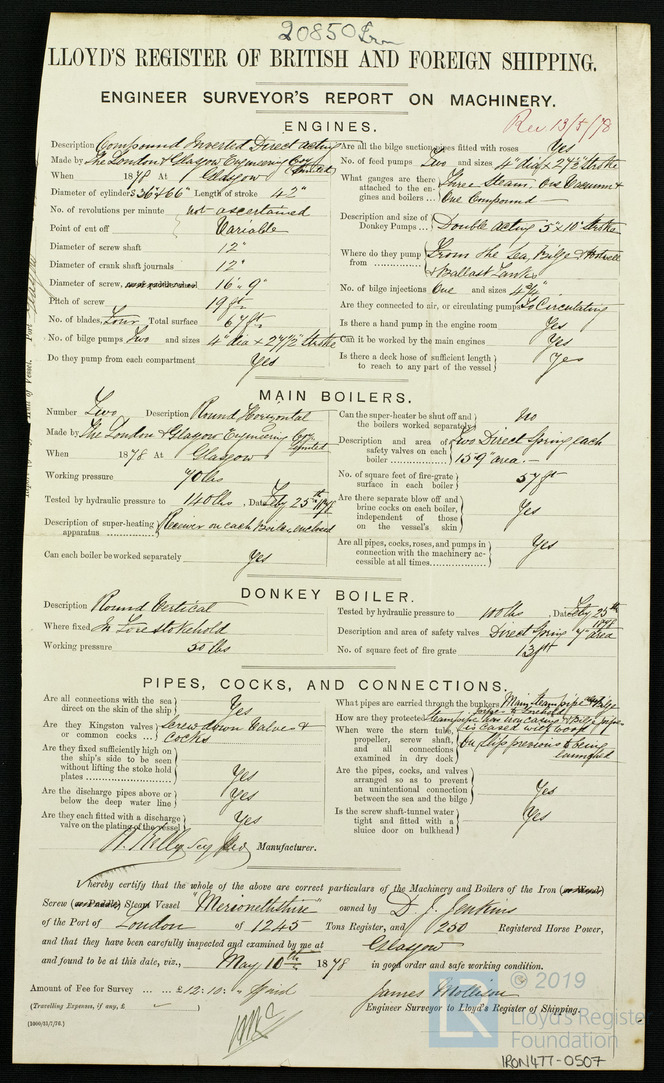 20850 Iron
LLOYD'S REGISTER OF BRITISH AND FOREIGN SHIPPING.
ENGINEER SURVEYOR'S REPORT ON MACHINERY.
Rec 13/5/78
ENGINES.
Description Compound Inverted Direct Acting
Made by The London & Glasgow Engineering Coy Limited
When 1878 At Glasgow
Diameter of cylinders 36" & 66" Length of stroke 42"
No. of revolutions per minute not ascertained
Point of cut off Variable
Diameter of screw shaft 12"
Diameter of crank shaft journals 12"
Diameter of screw, 16' 9"
Pitch of screw 19 ft
No. of blades, Four Total surface 67 ft
No. of bilge pumps Two and sizes 4" dia x 27½" Stroke
Do they pump from each compartment Yes
Are all the bilge suction pipes fitted with roses Yes
No. of feed pumps Two and sizes 4" dia x 27½ Stroke
What gauges are there attached to the engines and boilers Three Steam. One Vacuum & One Compound
Description and size of Donkey Pumps Double acting 5" x 10" Stroke
Where do they pump from From the Sea, Bilge & Hotwell & Ballast Tanks
No. of bilge injections One and sizes 4¾"
Are they connected to air, or circulating pumps To Circulating
Is there a hand pump in the engine room Yes
Can it be worked by the main engines Yes
Is there a deck hose of sufficient length to reach to any part of the vessel Yes
MAIN BOILERS.
Number Two Description Round Horizontal
Made by The London & Glasgow Engineering Coy Limited
When 1878 At Glasgow
Working pressure 70 lbs
Tested by hydraulic pressure to 140 lbs, Date Feby 25th 1878
Description of super-heating apparatus Receiver on each Boiler, enclosed
Can each boiler be worked separately Yes
Can the super-heater be shut off and the boilers worked separately No
Description and area of safety valves on each boiler Two Direct Spring each 15.9" area.
No. of square feet of fire-grate surface in each boiler 57 ft
Are there separate blow off and brine cocks on each boiler, independent of those on the vessel's skin Yes
Are all pipes, cocks, roses, and pumps in connection with the machinery accessible at all times Yes
DONKEY BOILER.
Description Round Vertical
Where fixed In Fore stokehold
Working pressure 50 lbs
Tested by hydraulic pressure to 100 lbs, Date Feby 25th 1878
Description and area of safety valves Direct Spring 7" area
No. of square feet of fire grate 13 ft
PIPES, COCKS, AND CONNECTIONS.
Are all connections with the sea direct on the skin of the ship Yes
Are they Kingston valves or common cocks Screw down Valves & Cocks
Are they fixed sufficiently high on the ship's side to be seen without lifting the stoke hold plates Yes
Are the discharge pipes above or below the deep water line Yes
Are they each fitted with a discharge valve on the plating of the vessel Yes
What pipes are carried through the bunkers Main steam pipe and Bilge
How are they protected Steam pipe has iron casing & Bilge pipe is cased with wood
When were the stern tube, propeller, screw shaft, and all connections examined in dry dock On slip previous to being launched
Are the pipes, cocks, and valves arranged so as to prevent an unintentional connection between the sea and the bilge Yes
Is the screw shaft-tunnel water tight and fitted with a sluice door on bulkhead Yes
Manufacturer.
I hereby certify that the whole of the above are correct particulars of the Machinery and Boilers of the Iron (or Wood)
Screw (or Paddle) Steam Vessel "Merionethshire" owned by D. J. Jenkins
of the Port of London of 1245 Tons Register, and 250 Registered Horse Power,
and that they have been carefully inspected and examined by me at Glasgow
and found to be at this date, viz., May 10th 1878 in good order and safe working condition.
Amount of Fee for Survey £12:10:" Paid
James Mollison
Engineer Surveyor to Lloyd's Register of Shipping.
(Travelling Expenses, if any, £ " )
© 2019
LR
Lloyd's Register
Foundation
IRON477-0507